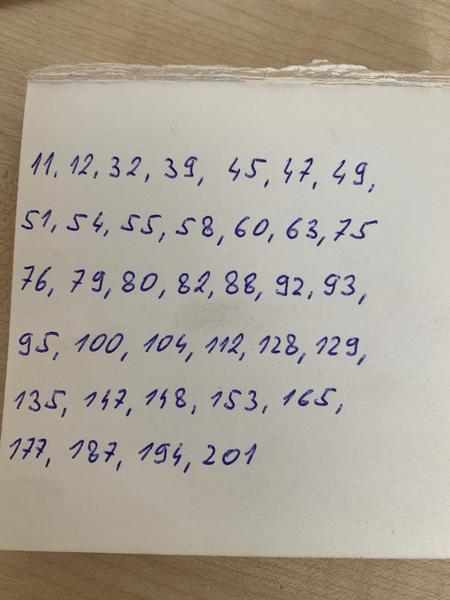 11, 12, 32, 39, 45, 47, 49,
51, 54, 55, 58, 60, 63, 75
76, 79, 80, 82, 88, 92, 93,
95, 100, 104, 112, 128, 129,
135, 147, 148, 153, 165,
177, 187, 194, 201